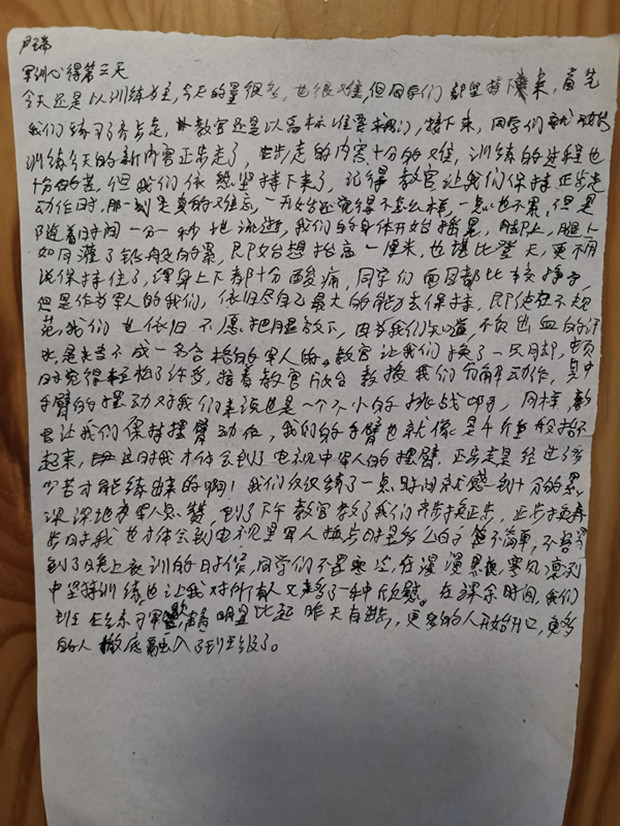 军训心得第三天
今天还是以训练为主,今天的量很多,也很难,但同学们都坚持下来,首先
我们练习了齐步走,教官还是以高标准要求我们,接下来,同学们就开始
训练今天的新内容正步走了,正步走的内容十分的难,训练的过程也
十分的苦,但我们依然坚持下来了,记得教官让我们保持正步走
动作时,那一刻是真的难忘,一开始还觉得不怎么样,一点也不累,但是
随着时间一分一秒地流逝,我们的身体开始摇晃,脚上,腿上
如同灌了铅般的累,即始想抬高一厘米,也堪比登天,更不用
说保持住了,浑身上下都十分酸痛,同学们面目都比较狰狞
但是作为军人的我们,依旧尽自己最大的能力去保持,即使很不规
范,我们也依旧不愿把腿放下,因为我们知道,不负出血的汗
水是当不成一名合格的军人的。教官让我们换了一只脚,顿
时觉得轻松了许多,接着教官教授我们分解动作,其中
手臂的摆动对我们来说也是一个不小的挑战啊,同样,教
官让我们保持摆臂动作,我们的手臂也就像是千斤重般抬不
起来,这时我才体会到了电视中军人的摆臂,正步走是经过了多
少苦才能练出来的啊!我们仅仅练了一点时间就感到十分的累,
深深地为军人点赞,到了下午教官教了我们齐步换正步,正步换齐
步时我也才体会到电视里军人换步时是多么的不简单,不容易
到了晚上夜训的时候,同学们不畏寒冷,在漫漫黑夜,寒风凛冽
中坚持训练也让我对所有人又多了一种欣慰。在课余时间,我们
班在练习军歌时明显比起昨天有进步,更多的人开始开口,更多
的人彻底融入了班级了。